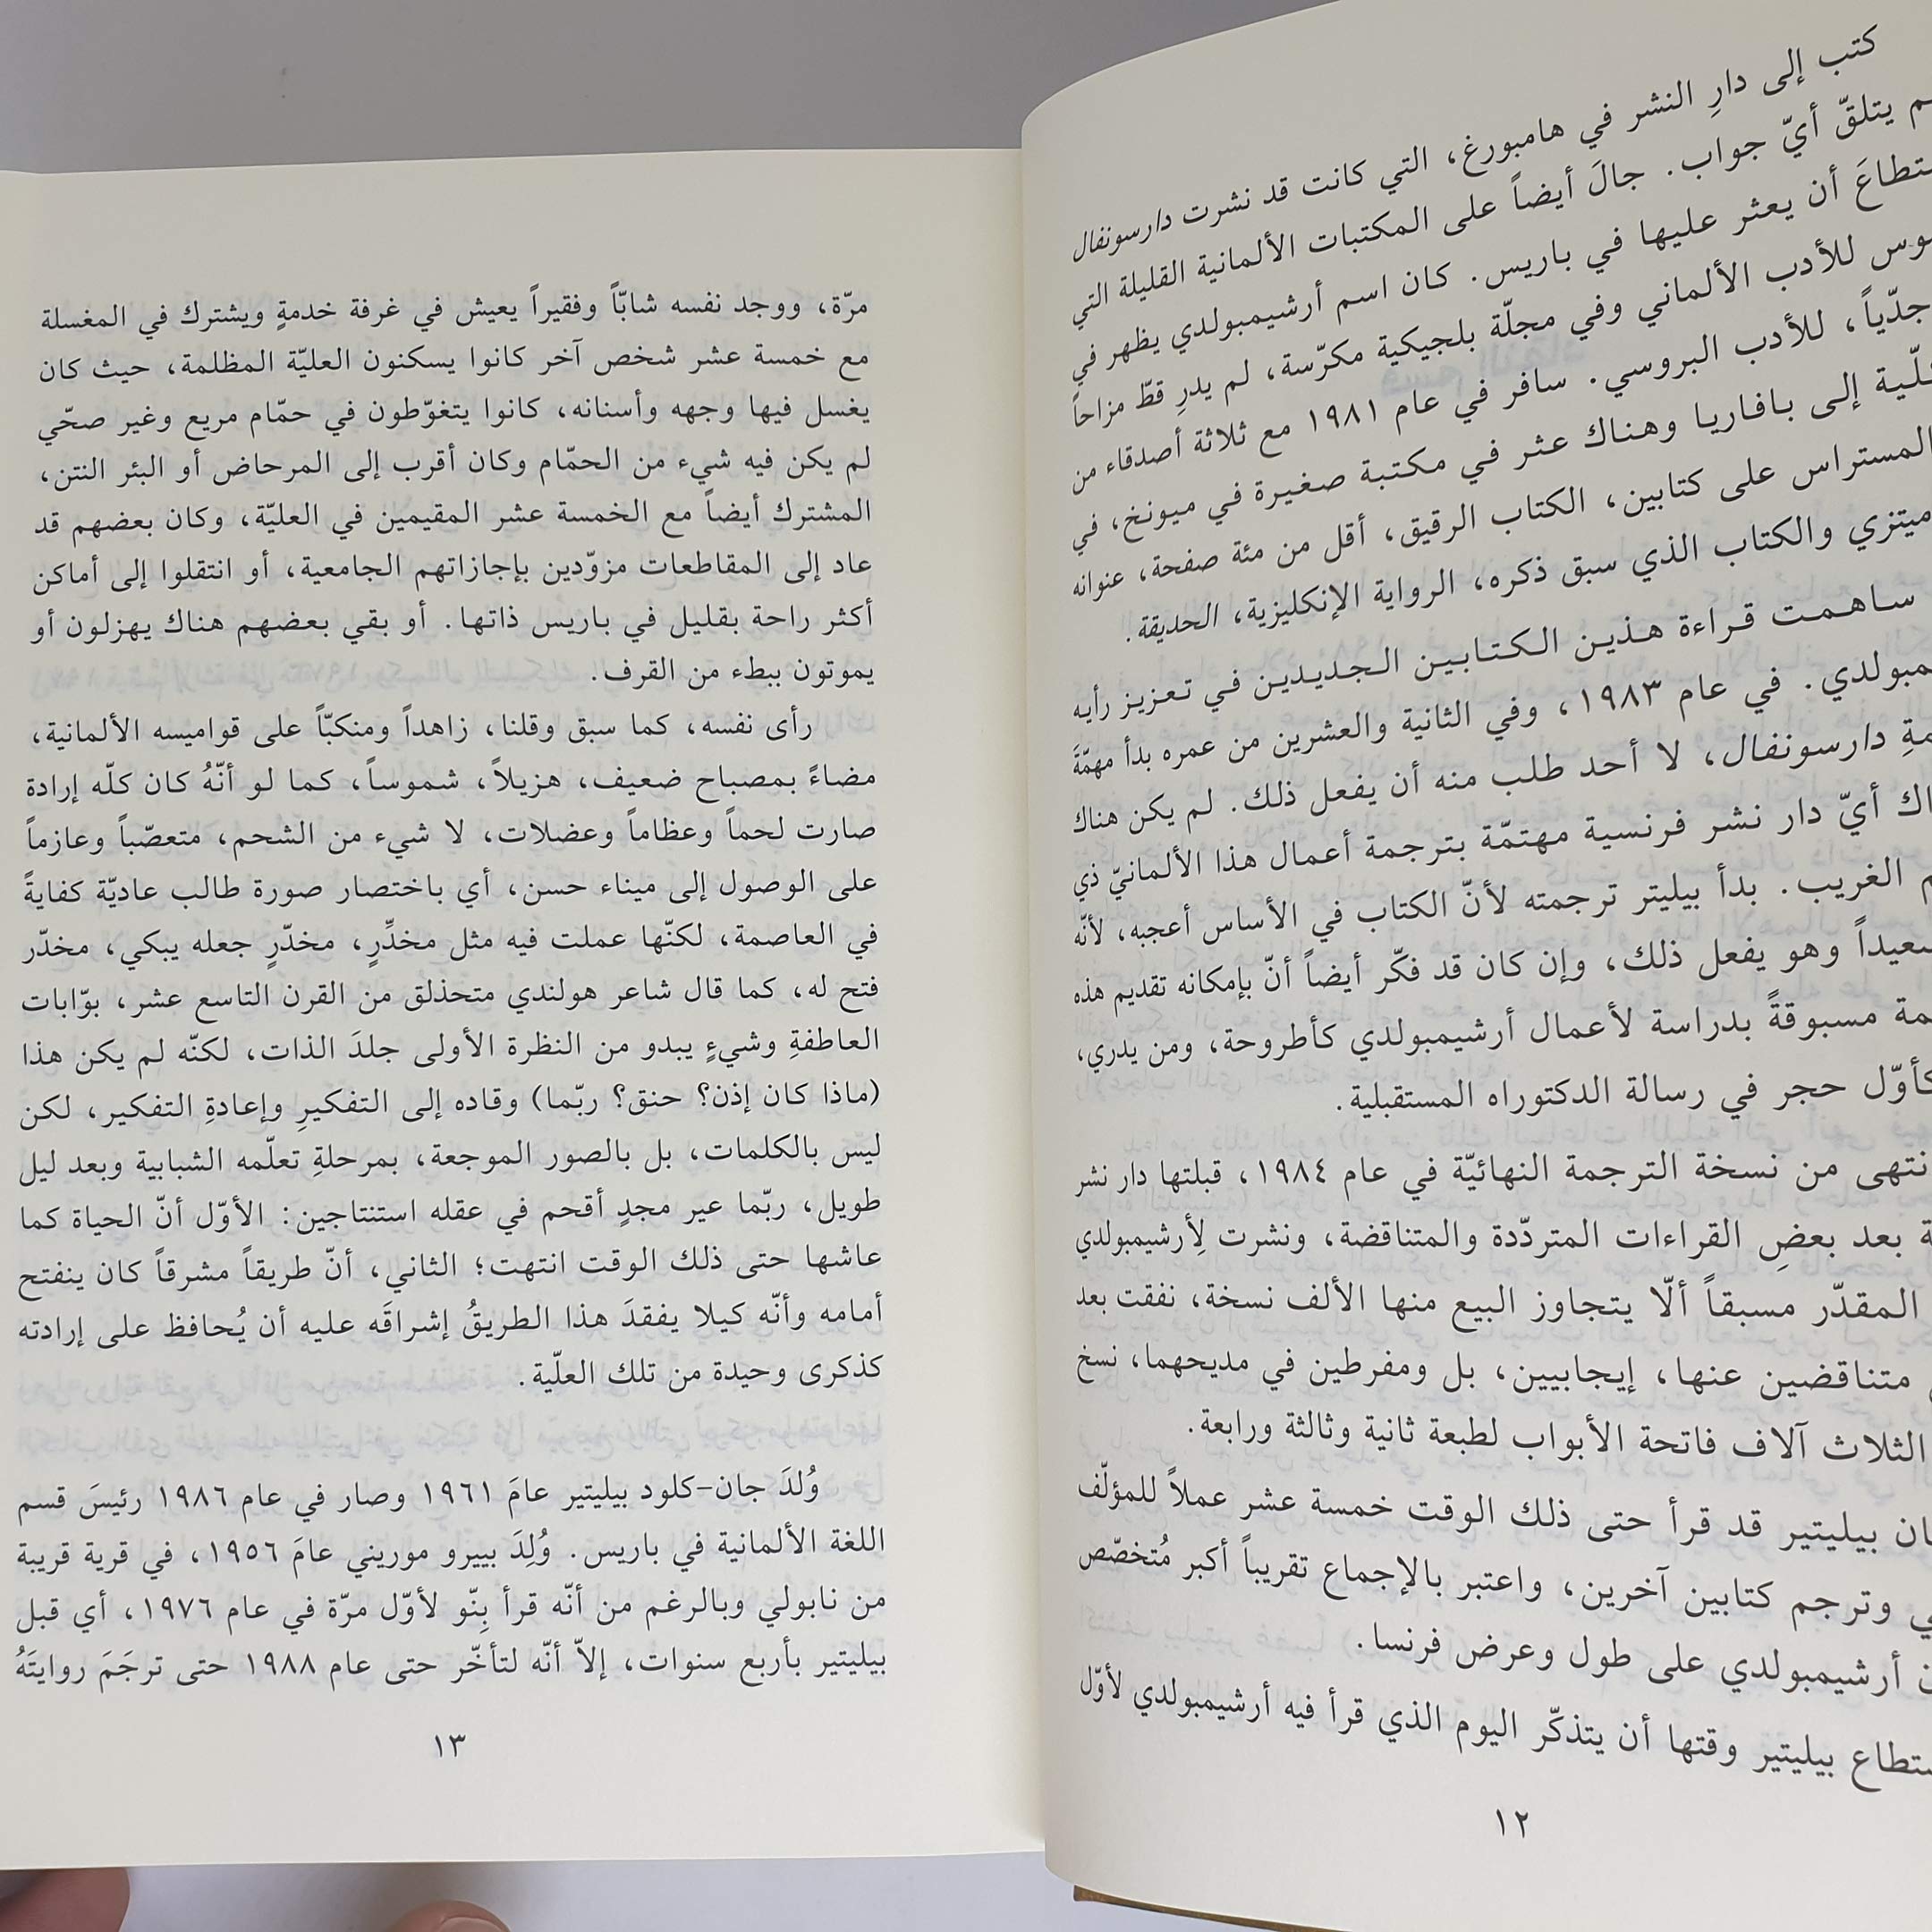 كتب إلى دارِ النشر في هامبورغ، التي كانت قد نشرت دارسونفال
يتلقّ أيّ جواب. جالَ أيضاً على المكتبات الألمانية القليلة التي
أن يعثر عليها في باريس. كان اسم أرشيمبولدي يظهر في
للأدب الألماني وفي مجلّة بلجيكية مكرّسة، لم يدرِ قطّ مزاحاً
جدّياً، للأدب البروسي. سافر في عام ١٩٨١ مع ثلاثة أصدقاء من
إلى بافاريا وهناك عثر في مكتبة صغيرة في ميونخ، في
المستراس على كتابين، الكتاب الرقيق، أقل من مئة صفحة، عنوانه
ميتزي والكتاب الذي سبق ذكره، الرواية الإنكليزية، الحديقة.
ساهمت قراءة هذين الكتابين الجديدين في تعزيز رأيه
في عام ١٩٨٣، وفي الثانية والعشرين من عمره بدأ مهمّةَ
دارسونفال، لا أحد طلب منه أن يفعل ذلك. لم يكن هناك
أيّ دار نشر فرنسية مهتمّة بترجمة أعمال هذا الألمانيّ ذي
الغريب. بدأ بيليتر ترجمته لأنّ الكتاب في الأساس أعجبه، لأنّه
وهو يفعل ذلك، وإن كان قد فكّر أيضاً أنّ بإمكانه تقديم هذه
مسبوقةً بدراسة لأعمال أرشيمبولدي كأطروحة، ومن يدري،
كأوّل حجر في رسالة الدكتوراه المستقبلية.
من نسخة الترجمة النهائيّة في عام ١٩٨٤، قبلتها دار نشر
بعد بعضِ القراءات المتردّدة والمتناقضة، ونشرت لِأرشيمبولدي
المقدّر مسبقاً ألّا يتجاوز البيع منها الألف نسخة، نفقت بعد
متناقضين عنها، إيجابيين، بل ومفرطين في مديحهما، نسخ
الثلاث آلاف فاتحة الأبواب لطبعة ثانية وثالثة ورابعة.
بيليتير قد قرأ حتى ذلك الوقت خمسة عشر عملاً للمؤلّف
وترجم كتابين آخرين، واعتبر بالإجماع تقريباً أكبر مُتخصّص
أرشيمبولدي على طول وعرض فرنسا.
بيليتير وقتها أن يتذكّر اليوم الذي قرأ فيه أرشيمبولدي لأوّل
١٢
مرّة، ووجد نفسه شابّاً وفقيراً يعيش في غرفة خدمةٍ ويشترك في المغسلة
مع خمسة عشر شخص آخر كانوا يسكنون العليّة المظلمة، حيث كان
يغسل فيها وجهه وأسنانه، كانوا يتغوّطون في حمّام مريع وغير صحّي
لم يكن فيه شيء من الحمّام وكان أقرب إلى المرحاض أو البئر النتن،
المشترك أيضاً مع الخمسة عشر المقيمين في العليّة، وكان بعضهم قد
عاد إلى المقاطعات مزوّدين بإجازاتهم الجامعية، أو انتقلوا إلى أماكن
أكثر راحة بقليل في باريس ذاتها. أو بقي بعضهم هناك يهزلون أو
يموتون ببطء من القرف.
رأى نفسه، كما سبق وقلنا، زاهداً ومنكبّاً على قواميسه الألمانية،
مضاءً بمصباح ضعيف، هزيلاً، شموساً، كما لو أنّهُ كان كلّه إرادة
صارت لحماً وعظاماً وعضلات، لا شيء من الشحم، متعصّباً وعازماً
على الوصول إلى ميناء حسن، أي باختصار صورة طالب عاديّة كفايةً
في العاصمة، لكنّها عملت فيه مثل مخدِّرٍ، مخدّرٍ جعله يبكي، مخدّر
فتح له، كما قال شاعر هولندي متحذلق من القرن التاسع عشر، بوّابات
العاطفةِ وشيءٍ يبدو من النظرة الأولى جلدَ الذات، لكنّه لم يكن هذا
(ماذا كان إذن؟ حنق؟ ربّما) وقاده إلى التفكيرِ وإعادةِ التفكير، لكن
ليس بالكلمات، بل بالصور الموجعة، بمرحلةِ تعلّمه الشبابية وبعد ليل
طويل، ربّما عير مجدٍ أقحم في عقله استنتاجين: الأوّل أنّ الحياة كما
عاشها حتى ذلك الوقت انتهت؛ الثاني، أنّ طريقاً مشرقاً كان ينفتح
أمامه وأنّه كيلا يفقدَ هذا الطريقُ إشراقَه عليه أن يُحافظ على إرادته
كذكرى وحيدة من تلك العلّية.
وُلدَ جان-كلود بيليتير عامَ ١٩٦١ وصار في عام ١٩٨٦ رئيسَ قسم
اللغة الألمانية في باريس. وُلِدَ بييرو موريني عامَ ١٩٥٦، في قرية قريبة
من نابولي وبالرغم من أنّه قرأ بِنّو لأوّل مرّة في عام ١٩٧٦، أي قبل
بيليتير بأربع سنوات، إلاّ أنّه لتأخّر حتى عام ١٩٨٨ حتى ترجَمَ روايتَهُ
١٣